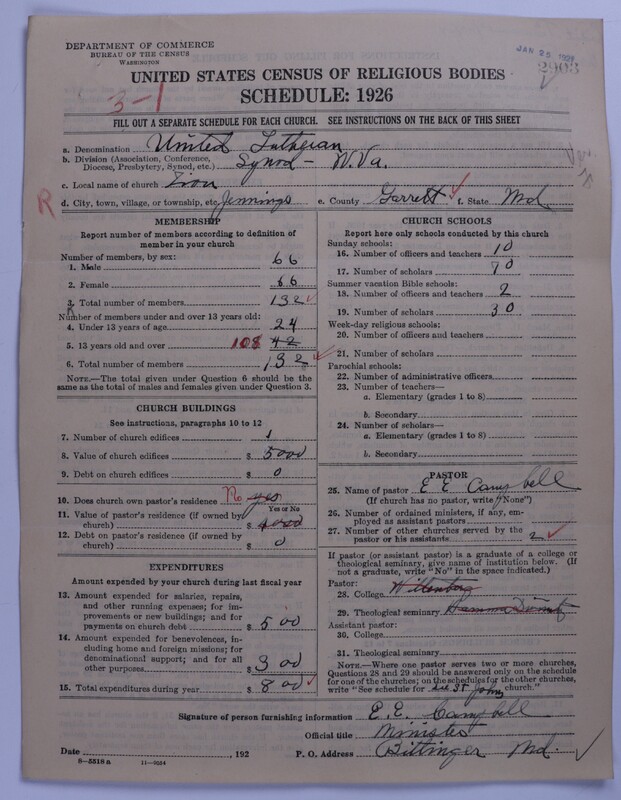 DEPARTMENT OF COMMERCE
BUREAU OF THE CENSUS
WASHINGTON
JAN 25 1927
2903
UNITED STATES CENSUS OF RELIGIOUS BODIES
SCHEDULE: 1926
3-1
FILL OUT A SEPARATE SCHEDULE FOR EACH CHURCH. SEE INSTRUCTIONS ON THE BACK OF THIS SHEET
a. Denomination United Lutheran
b. Division (Association, Conference, Diocese, Presbytery, Synod, etc.) Synod - W. Va.
c. Local name of church Zion
R
d. City, town, village, or township, etc. Jennings e. County Garrett f. State Md
MEMBERSHIP
Report number of members according to definition of
member in your church
Number of members, by sex:
1. Male 66
2. Female 66
3. Total number of members 132
Number of members under and over 13 years old:
4. Under 13 years of age 24
5. 13 years old and over 108 42
6. Total number of members 132
NOTE.—The total given under Question 6 should be the
same as the total of males and females given under Question 3.
CHURCH BUILDINGS
See instructions, paragraphs 10 to 12
7. Number of church edifices 1
8. Value of church edifices $ 5000
9. Debt on church edifices $ 0
10. Does church own pastor's residence No yes
Yes or No
11. Value of pastor's residence (if owned by
church) $ 4000
12. Debt on pastor's residence (if owned by
church) $ 0
EXPENDITURES
Amount expended by your church during last fiscal year
13. Amount expended for salaries, repairs,
and other running expenses; for im-
provements or new buildings; and for
payments on church debt $ 500
14. Amount expended for benevolences, in-
cluding home and foreign missions; for
denominational support; and for all
other purposes $ 300
15. Total expenditures during year $ 800
CHURCH SCHOOLS
Report here only schools conducted by this church
Sunday schools:
16. Number of officers and teachers 10
17. Number of scholars 70
Summer vacation Bible schools:
18. Number of officers and teachers 2
19. Number of scholars 30
Week-day religious schools:
20. Number of officers and teachers
21. Number of scholars
Parochial schools:
22. Number of administrative officers
23. Number of teachers—
a. Elementary (grades 1 to 8)
b. Secondary
24. Number of scholars—
a. Elementary (grades 1 to 8)
b. Secondary
PASTOR
25. Name of pastor E E Campbell
(If church has no pastor, write "None")
26. Number of ordained ministers, if any, em-
ployed as assistant pastors
27. Number of other churches served by the
pastor or his assistants 2
If pastor (or assistant pastor) is a graduate of a college or
theological seminary, give name of institution below. (If
not a graduate, write "No" in the space indicated.)
Pastor:
28. College Wittenberg
29. Theological seminary Hamma
Assistant pastor:
30. College
31. Theological seminary
NOTE.—Where one pastor serves two or more churches,
Questions 28 and 29 should be answered only on the schedule
for one of the churches; on the schedules for the other churches,
write "See schedule for St Johns church."
Signature of person furnishing information E. E. Campbell
Official title Minister
Date , 192 P. O. Address Bittinger Md.
8-5518 a 11-9554